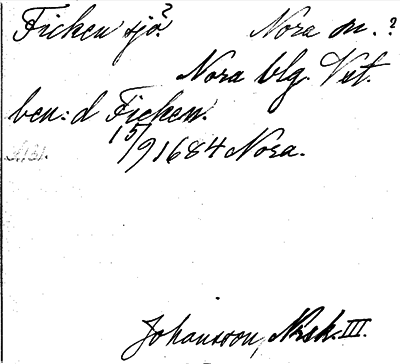 Ficken sjö? Nora sn.?
Nora blg. Vstm.
ben: d Ficken.
15/9 1684 Nora.
Johansson, Nbsk. III.